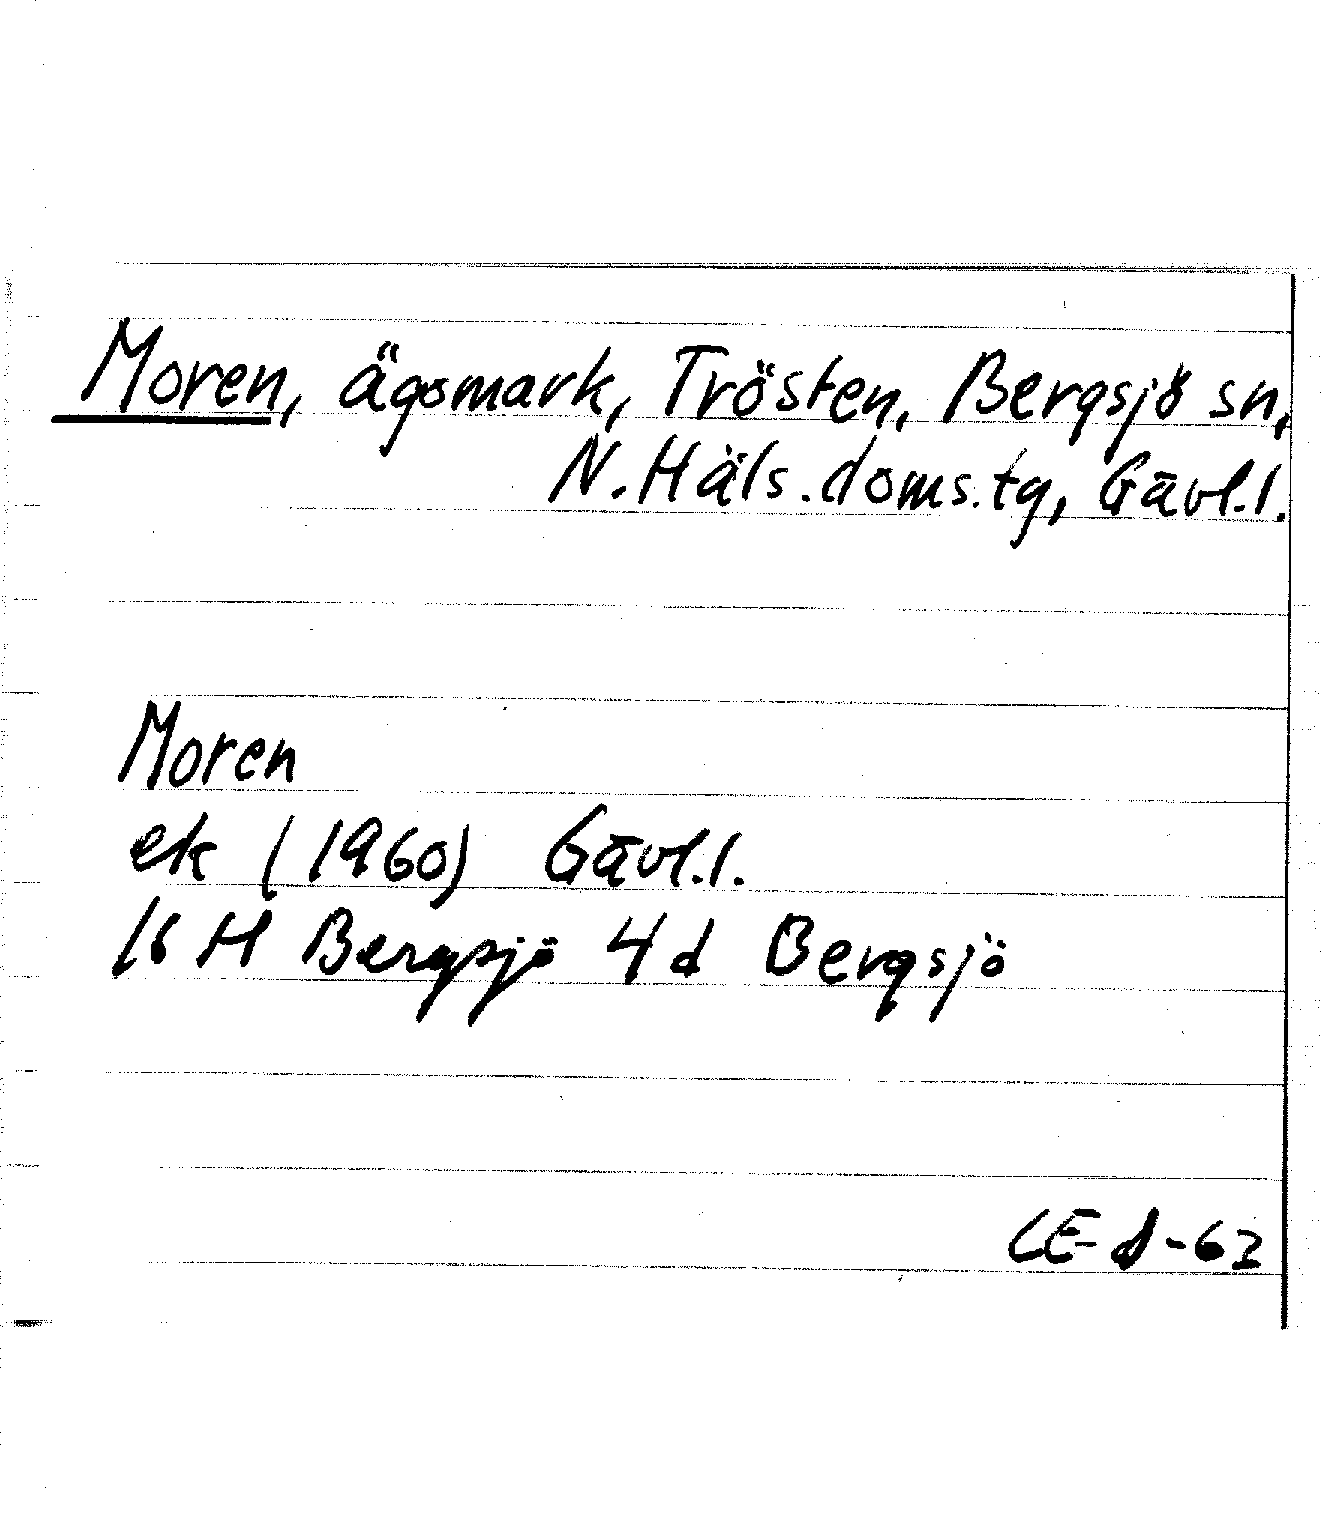 Moren, ägosmark, Trösten, Bergsjö sn,
N. Häls. doms. tg, Gävl. l.
Moren
ek (1960) Gävl. l.
16 H Bergsjö 4 d Bergsjö